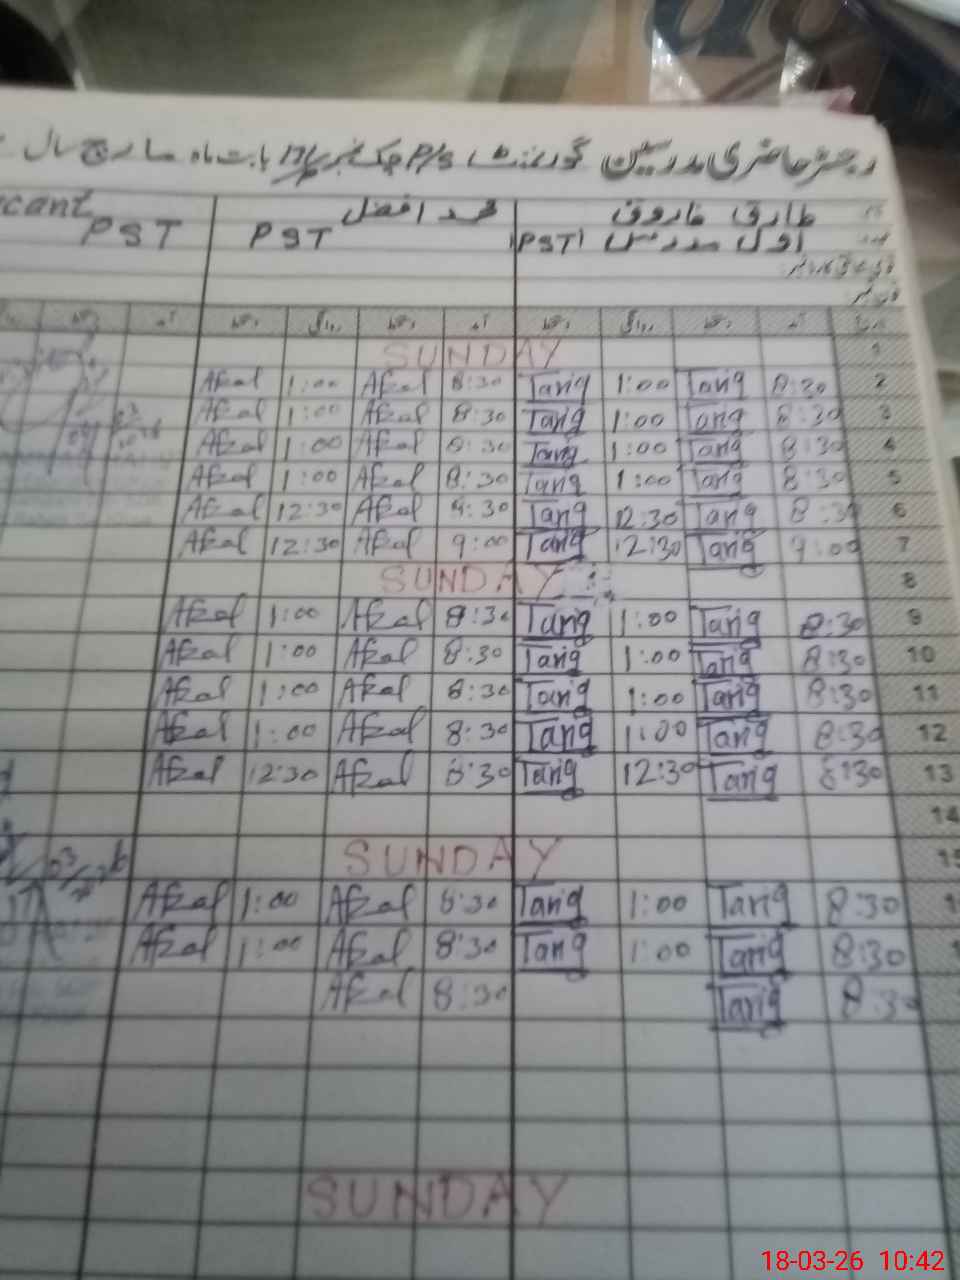 رجسٹر حاضری مدرسین گورنمنٹ P/S چک نمبر بابت ماہ مارچ سال
طارق فاروق محمد افضل cant
اول مدرس PST PST PST
تاریخ آمد دستخط روانگی دستخط آمد دستخط روانگی دستخط آمد
1 SUNDAY
Afzal 1:00 Afzal 8:30 Tariq 1:00 Tariq 8:30 2
Afzal 1:00 Afzal 8:30 Tariq 1:00 Tariq 8:30 3
Afzal 1:00 Afzal 8:30 Tariq 1:00 Tariq 8:30 4
Afzal 1:00 Afzal 8:30 Tariq 1:00 Tariq 8:30 5
Afzal 12:30 Afzal 8:30 Tariq 12:30 Tariq 8:30 6
Afzal 12:30 Afzal 9:00 Tariq 12:30 Tariq 9:00 7
SUNDAY 8
Afzal 1:00 Afzal 8:30 Tariq 1:00 Tariq 8:30 9
Afzal 1:00 Afzal 8:30 Tariq 1:00 Tariq 8:30 10
Afzal 1:00 Afzal 8:30 Tariq 1:00 Tariq 8:30 11
Afzal 1:00 Afzal 8:30 Tariq 1:00 Tariq 8:30 12
Afzal 12:30 Afzal 8:30 Tariq 12:30 Tariq 8:30 13
14
SUNDAY 15
Afzal 1:00 Afzal 8:30 Tariq 1:00 Tariq 8:30
Afzal 1:00 Afzal 8:30 Tariq 1:00 Tariq 8:30
Afzal 8:30 Tariq 8:30
SUNDAY
18-03-26 10:42